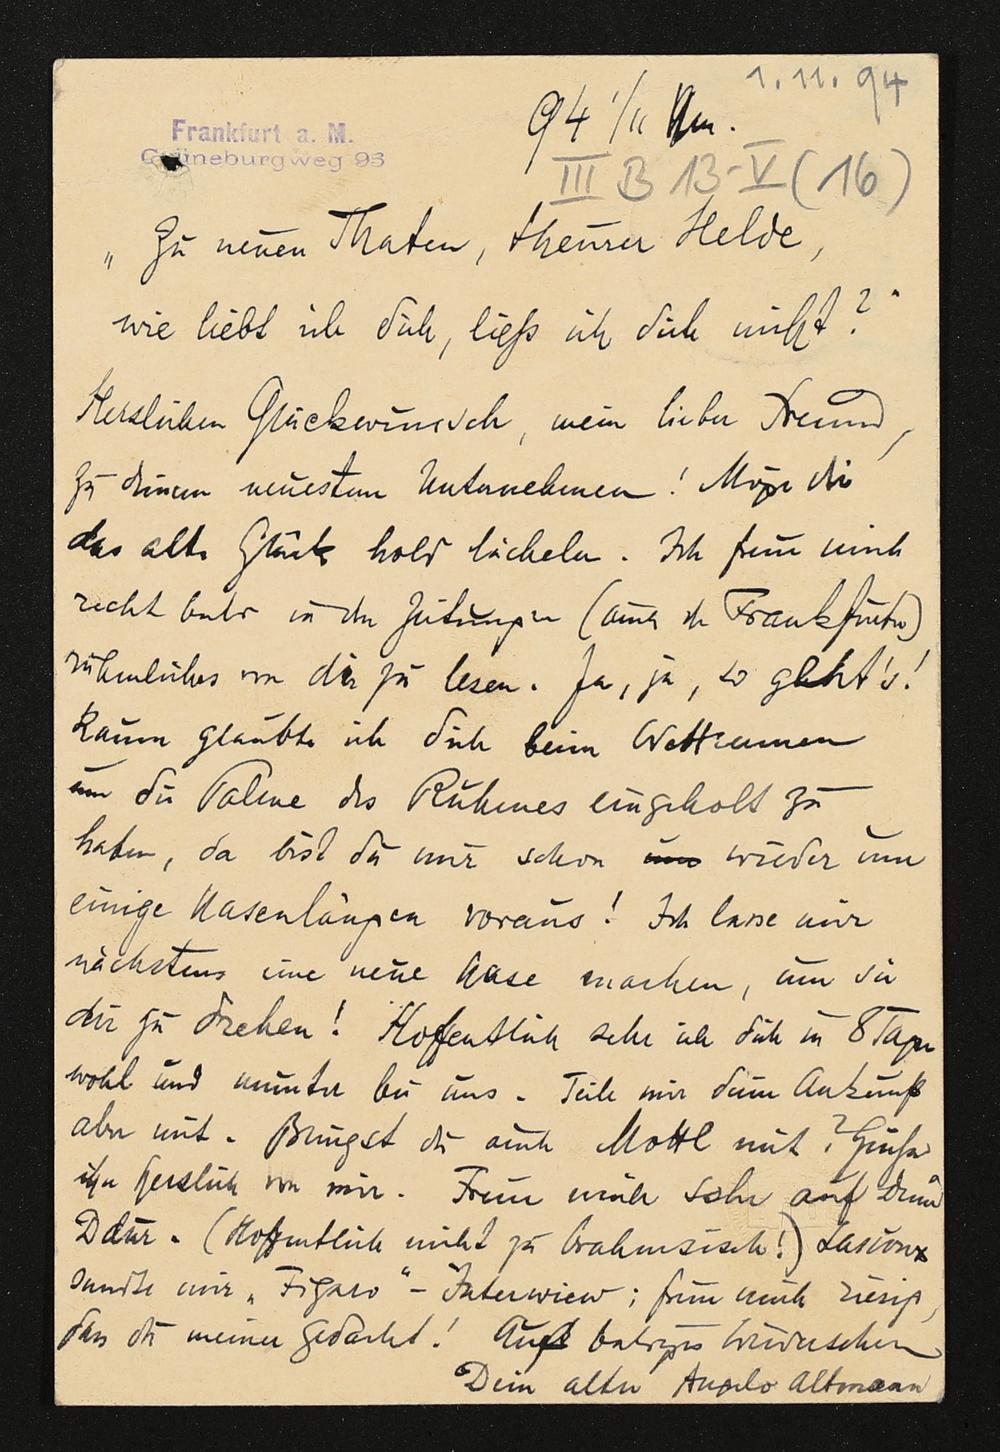 1. 11. 94
Frankfurt a. M.
Grüneburgweg 93
94 1/11 Nm.
III B 13-V (16)
„Zu neuen Thaten, theurer Helde,
wie liebt ich dich, ließ ich dich nicht?"
Herzlichen Glückwunsch, mein lieber Freund,
zu deinem neuesten Unternehmen! Möge dir
das alte Glück hold lächeln. Ich freue mich
recht bald in den Zeitungen (auch der Frankfurter)
rühmliches von dir zu lesen. Ja, ja, so geht's!
Kaum glaubte ich dich beim Wettrennen
um die Palme des Ruhmes eingeholt zu
haben, da bist du mir schon um wieder um
einige Nasenlängen voraus! Ich lasse mir
nächstens eine neue Nase machen, um sie
dir zu drehen! Hoffentlich sehe ich dich in 8 Tagen
wohl und munter bei uns. Teile mir deine Ankunft
aber mit. Bringst du auch Mottl mit? Grüße
ihn herzlich von mir. Freue mich sehr auf deine
Ddur. (Hoffentlich nicht zu brahmsisch!)
sandte mir „Figaro" - Interwiew; freue mich riesig,
dass du meiner gedacht! Auf baldiges Wiedersehen
Dein alter Angelo Altmann